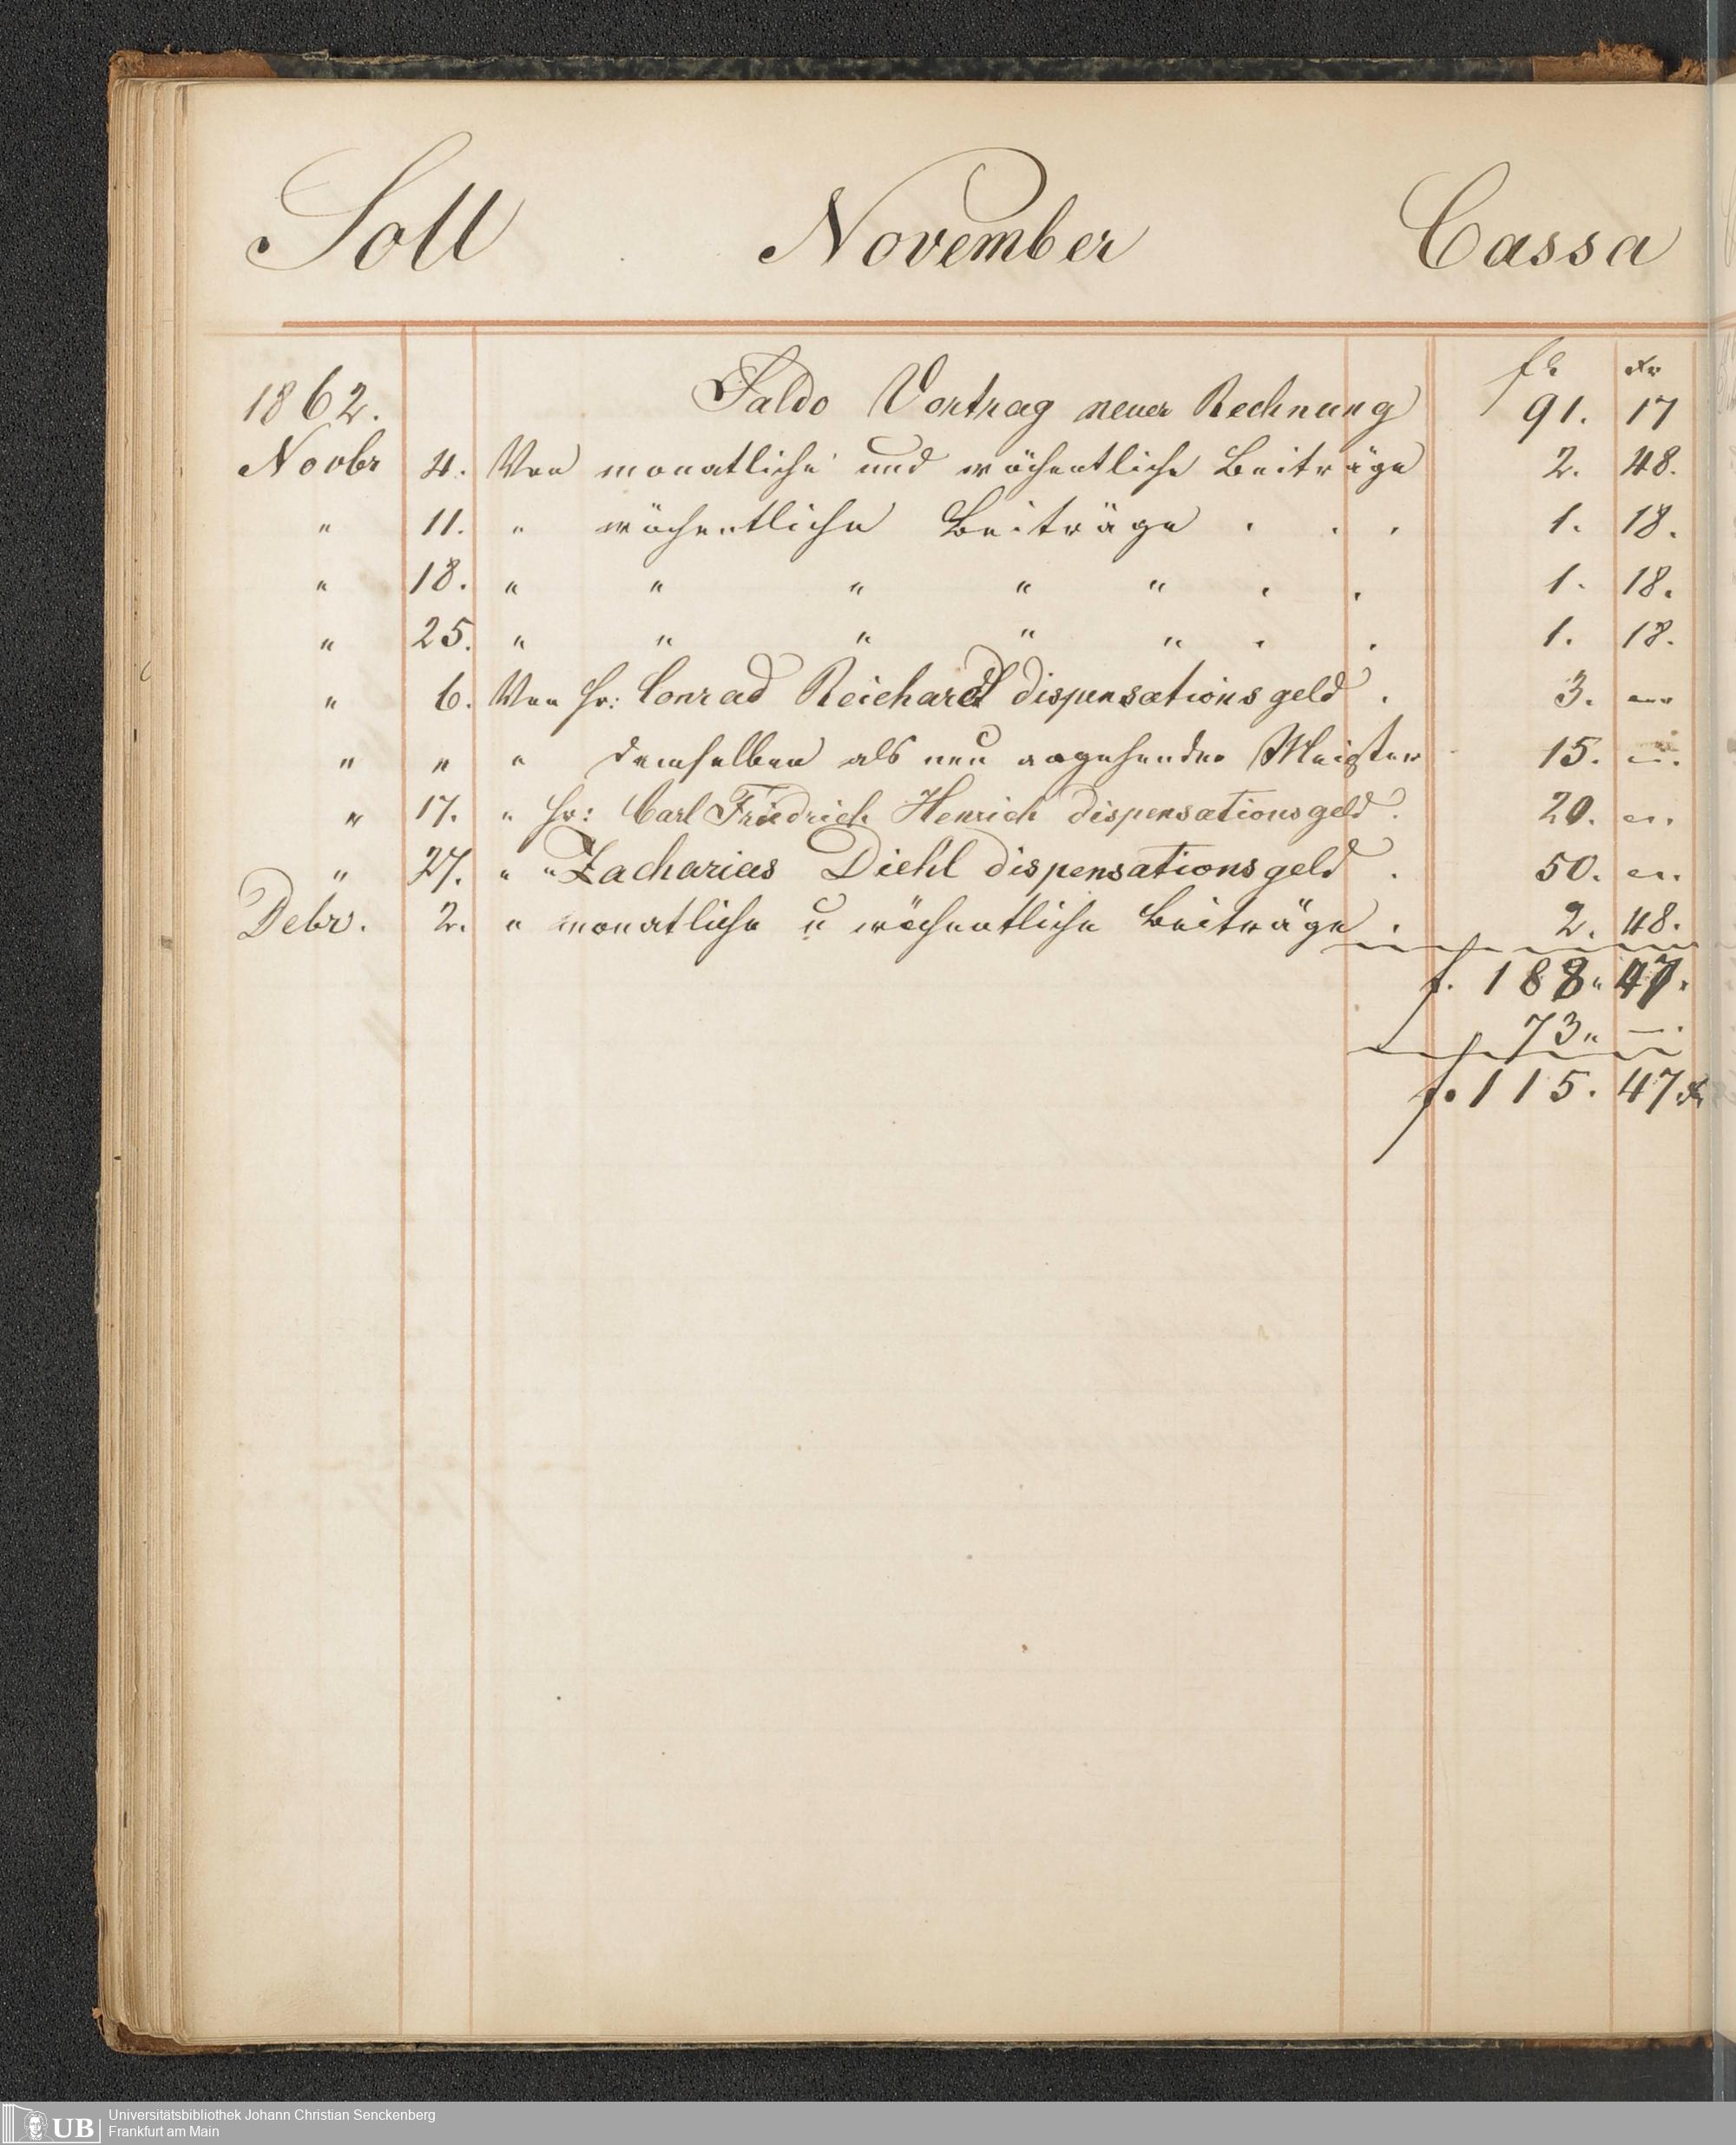 Soll November Cassa
fl. xr
1862. Saldo Vortrag neuer Rechnung 91. 17
Novbr 4. Von monatliche und wöchentliche Beiträge 2. 48.
" 11. " wöchentliche Beiträge . . . 1. 18.
" 18. " " " " " . . 1. 18.
" 25. " " " " " . . 1. 18.
" 6. Von Hr: Conrad Reichard dispensationsgeld . 3. —
" " " demselben als neu angehender Meister 15. —.
" 17. " Hr: Carl Friedrich Henrich dispensationsgeld . 20. —.
" 27. " " Zacharias Diehl dispensationsgeld . 50. —.
Debr. 2. " monatliche u wöchentliche Beiträge . 2. 48.
f. 188. 47.
73. —.
f. 115. 47 xr
UB Universitätsbibliothek Johann Christian Senckenberg
Frankfurt am Main